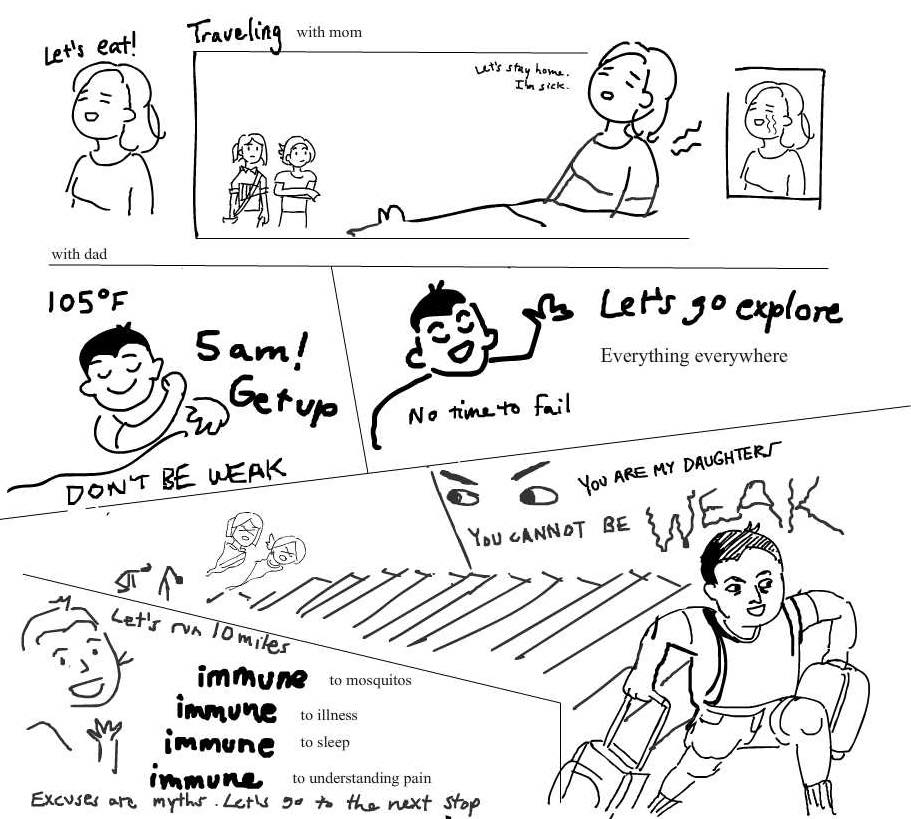 Let's eat!
Traveling with mom
Let's stay home.
I'm sick.
with dad
105°F
5am!
Get up
DON'T BE WEAK
Let's go explore
Everything everywhere
No time to fail
YOU ARE MY DAUGHTERS
YOU CANNOT BE WEAK
Let's run 10 miles
immune to mosquitos
immune to illness
immune to sleep
immune to understanding pain
Excuses are myths. Let's go to the next stop